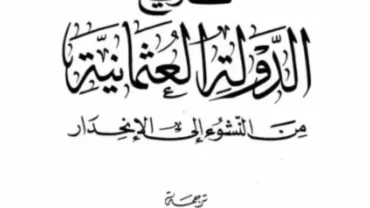 تاريخ
الدَّوْلَةِ العُثْمَانِيَّةِ
مِنَ النُّشُوءِ إِلَى الإِنْحِدَارِ
ترجمة